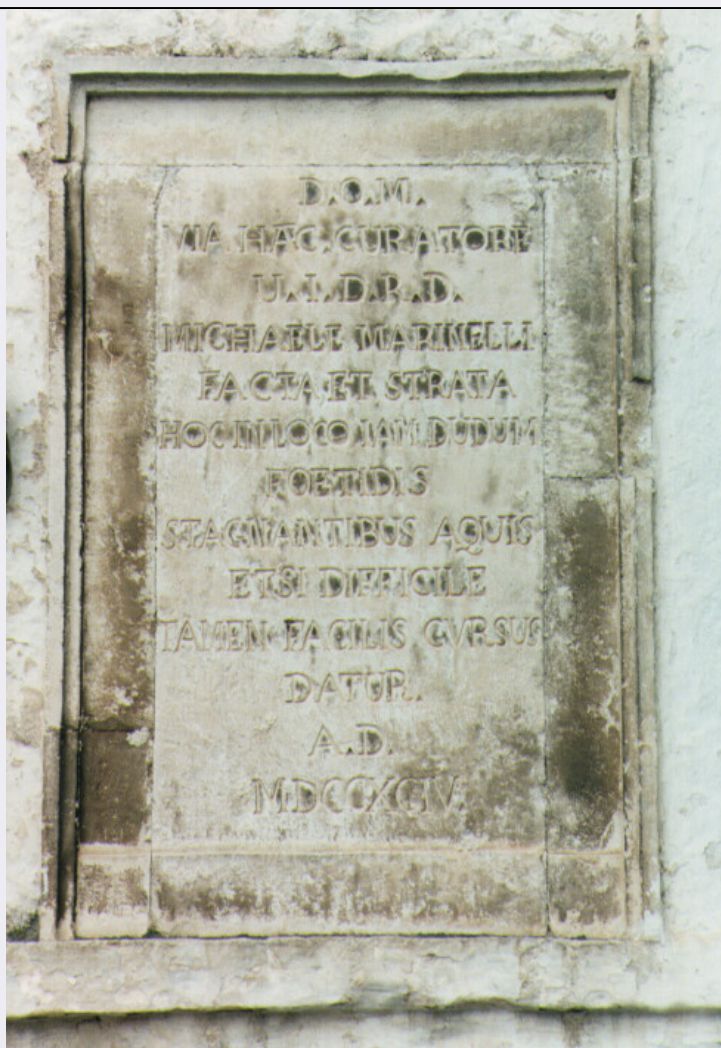 D.O.M.
VIA.HAC.CURATORE
U.I.D.R.D.
MICHAELE MARINELLI
FACTA ET STRATA
HOC IN LOCO IAM.DUDUM
FOETIDIS
STAGNANTIBUS AQUIS
ETSI DIFFICILE
TAMEN FACILIS CVRSUS
DATUR.
A.D.
MDCCXCIV.